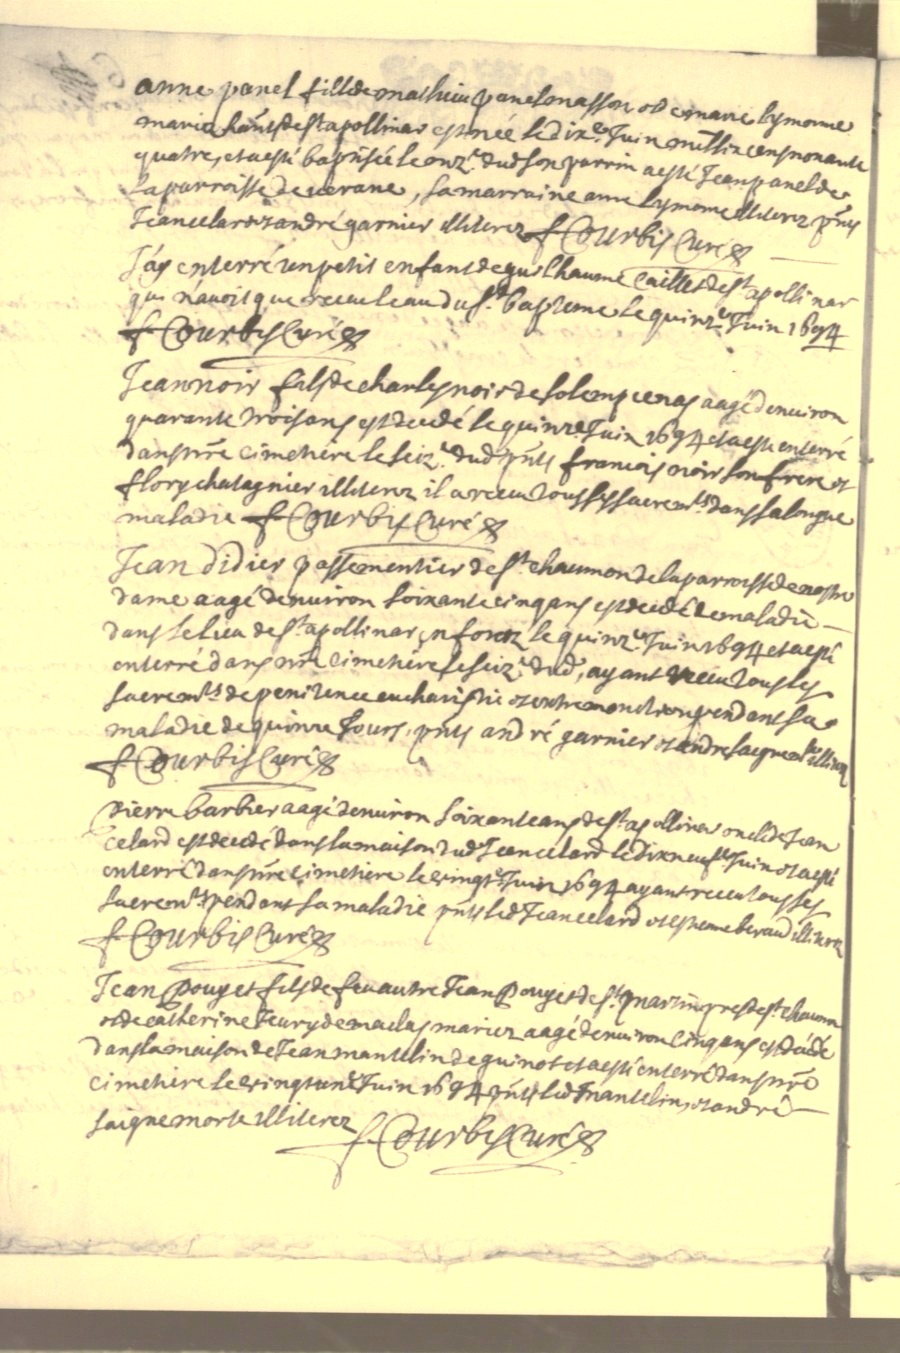 anne panel fille de mathieu panel masson et de marie lymonne
mariez hants de st apollinar est née le dixe Juin mil six cens nonante
quatre, et a esté baptisée le onze dud son parrin a esté Jean panel de
la parroisse de verane, sa marraine anne lymonne illiterez pnts
Jean celard et andré garnier illiterez f Courbis Curé
J'ay enterré un petit enfant de guilhaume Caillet de st apollinar
qui n'avoit que receu leau du st baptesme le quinze Juin 1694
f Courbis Curé
Jean noir fils de charles noir de solempcenas aagé denviron
quarante trois ans est decedé le quinze Juin 1694 et a esté enterré
dans nre cimetiere le seize dud pnts francois noir son frere et
flory chatagnier illiterez il a receu tous les sacremts dans sa longue
maladie f Courbis Curé
Jean didier passementier de st chaumon de la parroisse de nostre
dame aagé denviron soixante cinq ans est decedé de maladie
dans le lieu de st apollinar le quinze Juin 1694 et a esté
enterré dans nre cimetiere le seize dud, ayant receu tous les
sacremts de penitence eucharistie et extremonction pendant sa
maladie de quinze Jours, pnts andré garnier et andré saignemorte illiterez
f Courbis Curé
pierre barbier aagé denviron soixante ans de st apollinar oncle de Jean
celard est decedé dans la maison dud Jean celard le dixneufe Juin et a esté
enterré dans nre cimetiere le vingte Juin 1694 ayant receu tous les
sacremts pendant sa maladie pnts led Jean celard et estienne beraud illiterez
f Courbis Curé
Jean Pouget fils de feu autre Jean Pouget de st martin pres de st chaumon
et de catherine Teury de maclas mariez aagé denviron cinq ans est decedé
dans la maison de Jean mantelin de guinot et a esté enterré dans nre
cimetiere le vingt une Juin 1694 pnts led mantelin, et andré
saignemorte illiterez
f Courbis Curé